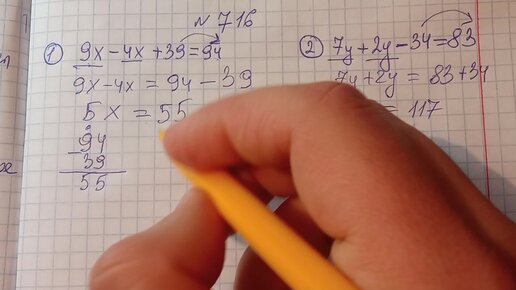 № 716
① 9x - 4x + 39 = 94
9x - 4x = 94 - 39
5x = 55
94
- 39
55
② 7y + 2y - 34 = 83
7y + 2y = 83 + 34
= 117